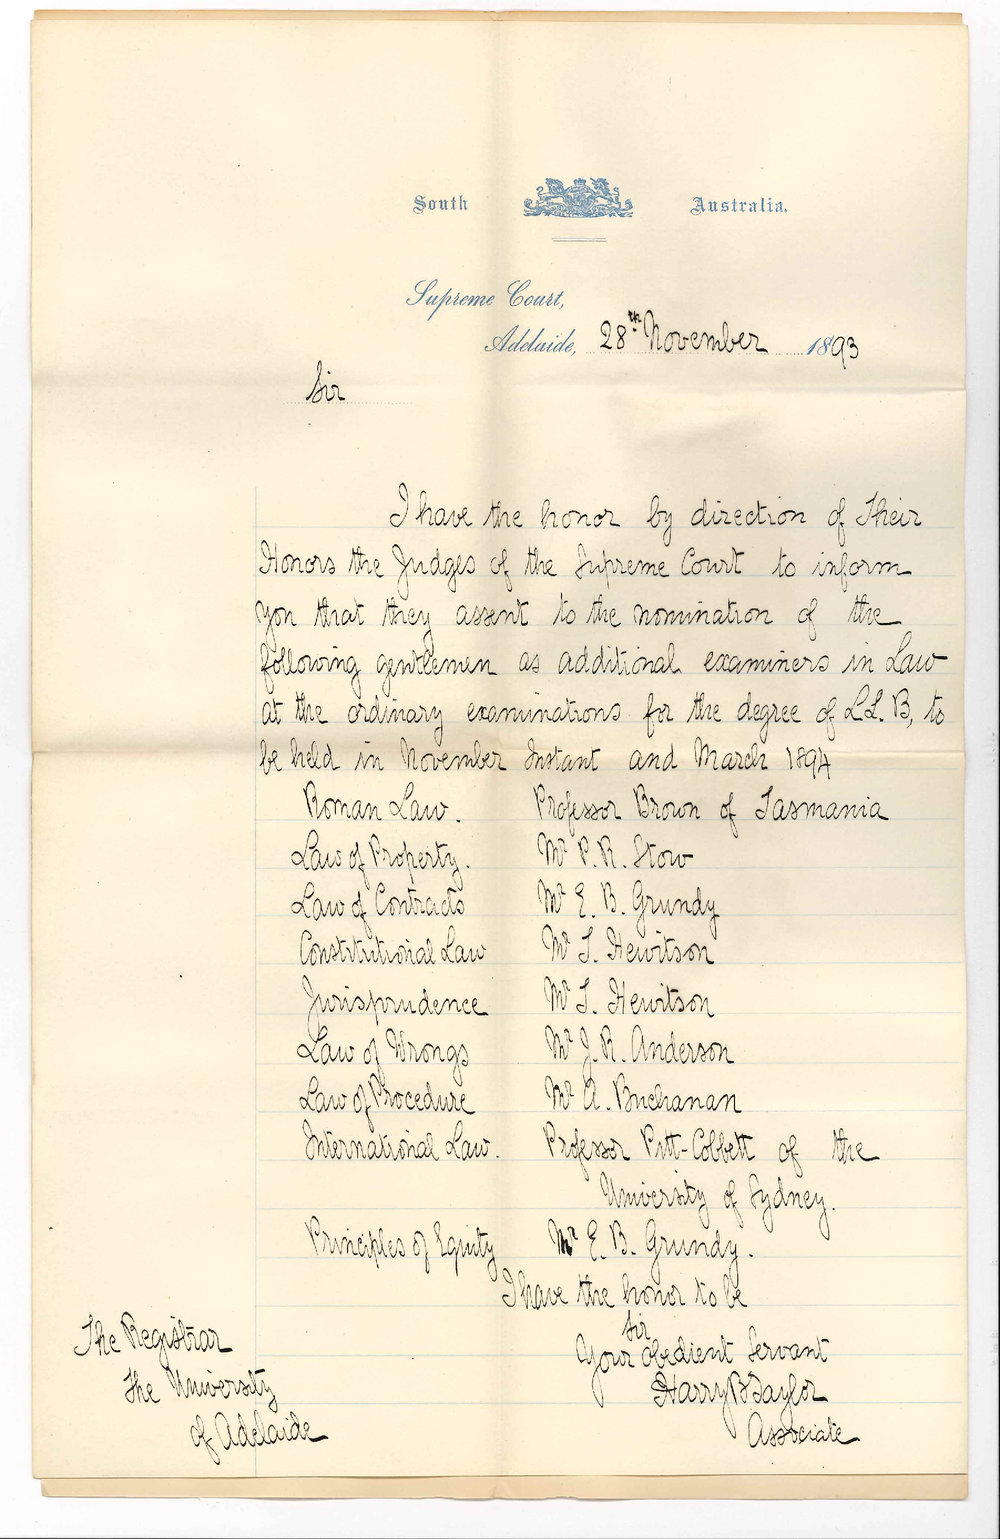 South Australia.
Supreme Court,
Adelaide, 28th November 1893
Sir
I have the honor by direction of Their
Honors the Judges of the Supreme Court to inform
you that they assent to the nomination of the
following gentlemen as additional examiners in Law
at the ordinary examinations for the degree of LL.B, to
be held in November Instant and March 1894
Roman Law. Professor Brown of Tasmania
Law of Property. Mr P. R. Stow
Law of Contracts Mr E. B. Grundy
Constitutional Law Mr T. Hewitson
Jurisprudence Mr T. Hewitson
Law of Wrongs Mr J. R. Anderson
Law of Procedure Mr A. Buchanan
International Law. Professor Pitt-Cobbett of the
University of Sydney.
Principles of Equity Mr E. B. Grundy.
I have the honor to be
Sir
Your obedient Servant
Harry B Taylor
Associate
The Registrar
The University
of Adelaide